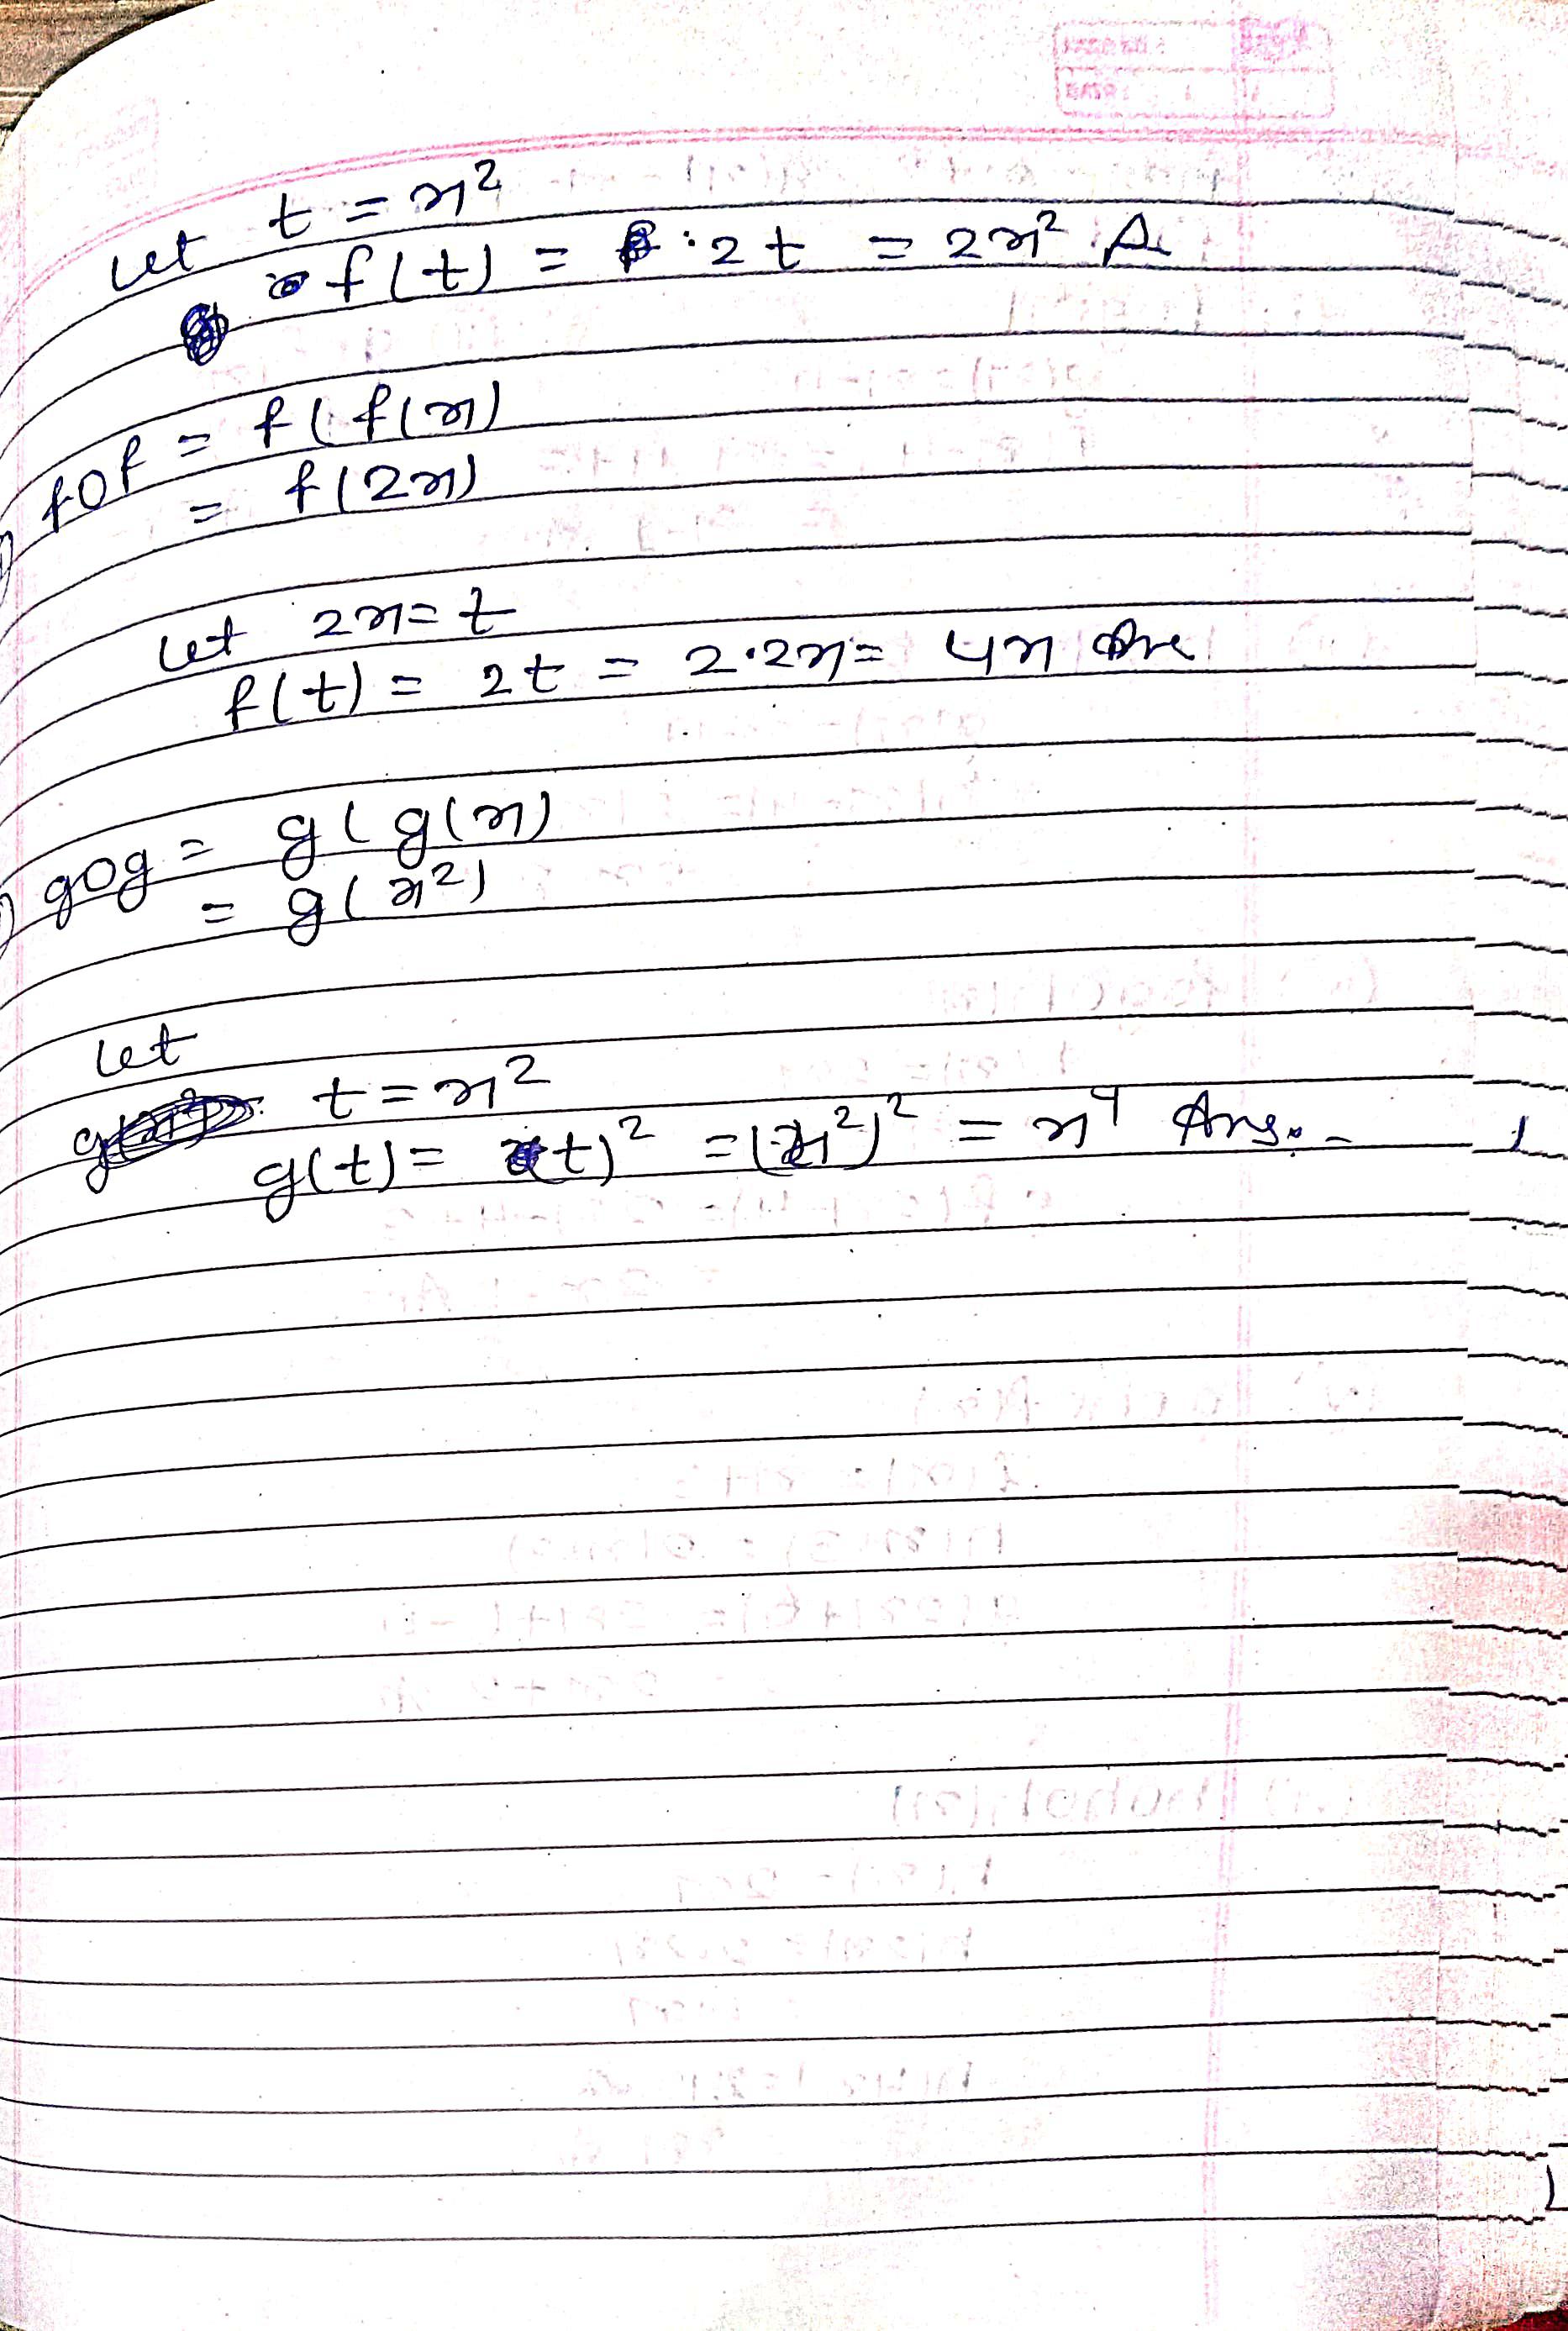 let t = x²
f(t) = 2t = 2x² A
fof = f(f(x)
= f(2x)
let 2x=t
f(t) = 2t = 2·2x = 4x Ans
gog = g(g(x)
= g(x²)
let
t = x²
g(t) = t)² = (x²)² = x⁴ Ans.